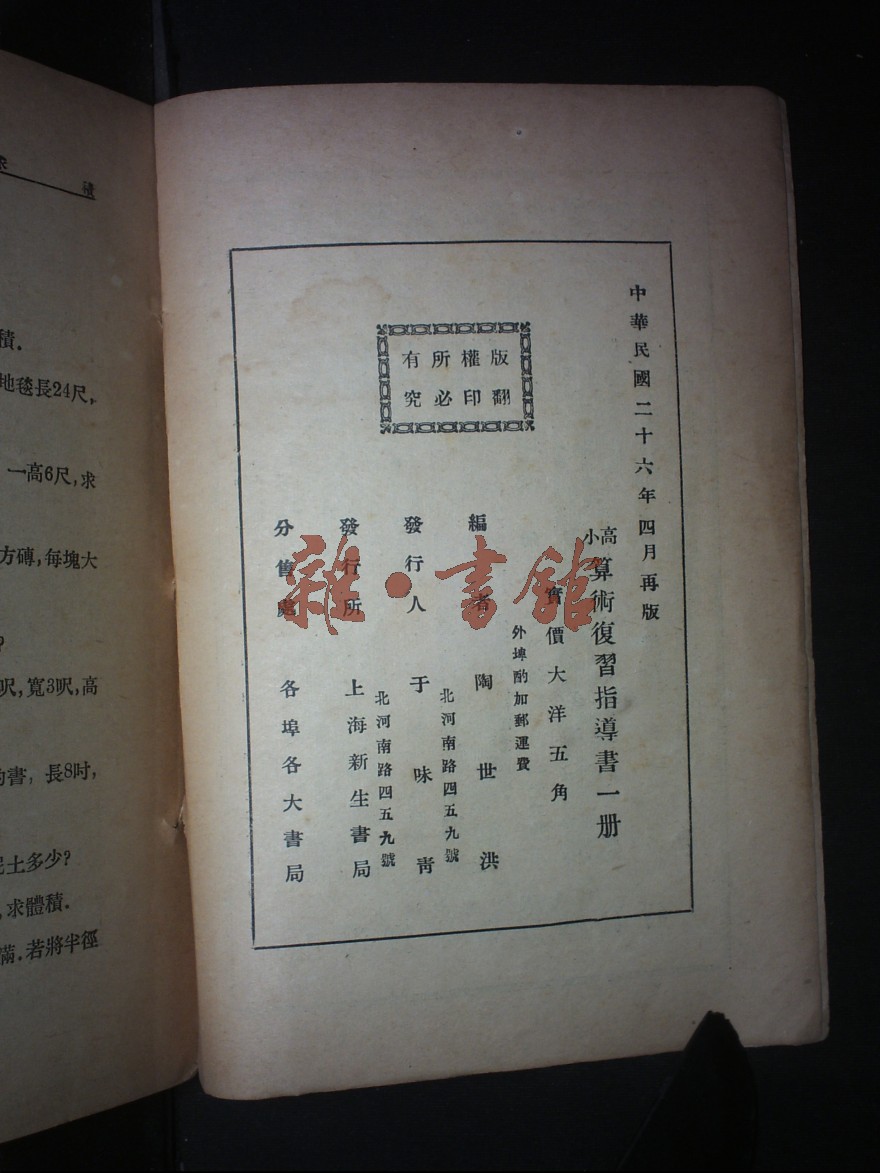 中華民國二十六年四月再版
高小算術復習指導書一册
實價大洋五角
外埠酌加郵運費
編者 陶世洪
北河南路四五九號
發行人 于味青
北河南路四五九號
發行所 上海新生書局
分售處 各埠各大書局
版權所有
翻印必究
雜·書館
積
積.
地毯長24尺,
一高6尺,求
方磚,每塊大
?
呎,寬3呎,高
的書,長8吋,
泥土多少?
,求體積.
滿.若將半徑